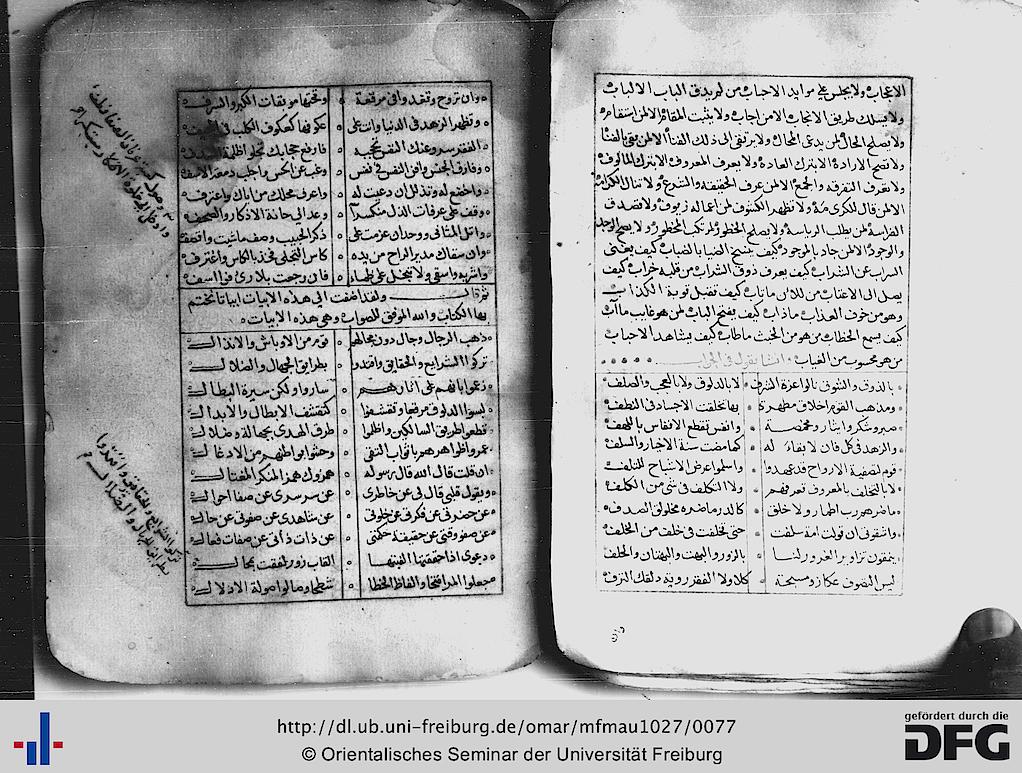 الاعتاب ولا يجلس على موايد الاحباب من لم يدق الباب الا لباب
ولا يسلك طريق الانجاب الا من اجاب ولا يثبت المقام الا لمن استقام
ولا يصلح الحال لمن يدعى المحال ولا يرتقى الى ذلك الفنا الا من بقى
ولا تصح الارادة الا بترك العادة ولا يعرف المعروف الا بترك المالوف
ولا تعرف التفرقه والجمع الا لمن عرف الحقيقه والشرع ولا تنال
الا لمن قال للكرى مه ولا تظهر الكشوف لمن اعماله زيوف ولا تصدق
الفراسه لمن يطلب الرياسه ولا يصلح الحضور لمرتكب المحظور ولا يصح
والوجود الا لمن جاد بالموجود كيف يستبيح الضيا بالضباب كيف يغتنى
السراب عن الشراب كيف يعرف ذوق الشراب من قلبه خراب كيف
يصل الى الاعتاب من للاثم ما تاب كيف تقبل توبة الكذاب
وهو من خوف العذاب ما ذاب كيف يفتح الباب لمن هو غايب ما آب
كيف يسمع الخطاب من هو من الخبث ما طاب كيف يشاهد الاحباب
من هو محسوب من الغياب
بالذوق والشوق نالوا عزة الشرف لا بالدلوق ولا بالعجب والصلف
ومذهب القوم اخلاق مطهرة بها تخلقت الاجساد فى النطف
صبر وشكر وايثار ومخمصة وانفس تقطع الانفاس باللهف
والزهد فى كل فان لا بقاء له كما مضت سنة الاخيار والسلف
قوم لتصفية الارواح قد عمدوا واسلموا عرض الاشباح للتلف
لا بالتخلف بالمعروف تعرفهم ولا التكلف فى شئ من الكلف
ما ضرهم رث اطمار ولا خلق كالدر ما ضره مخلولق الصدف
وا شقوتى ان تولت امة سلفت حتى تخلفت فى خلف من الخلف
ينمقون تزاوير الغرور لنا بالزور والبهت والبهتان والخلف
ليس التصوف عكازا ومسبحة كلا ولا الفقر روية ذلك الترف
وان
وان تروح وتغدو فى مرقعة وتحتها موبقات الكبر والسرف
وتظهر الزهد فى الدنيا وانت على عكوفها كعكوف الكلب فى
الفقر سر وعنك النفس تحجبه فارفع حجابك تجلو ظلمة
وفارق الجنس واقر النفس فى نفس وغب عن الحس واجلب دمعة الاسف
واخضع له وتذلل ان دعيت له واعرف محلك من اباك واعترف
وقف على عرفات الذل منكسرا
واتل المثانى ووحد ان عزمت على ذكر الحبيب وصف ما شئت واتصف
وان سقاك مدير الراح من يده كاس التجلى فخذ بالكاس واغترف
واشرب واسقى ولا تبخل على ظماء فان رجعت بلا رى فوا اسف
ولقد اضفت الى هذه الابيات ابياتا تختم
بها الكتاب والله الموفق للصواب وهى هذه الابيات
ذهب الرجال وحال دون مجالهم قوم من الاوباش والانذال
تركوا الشرايع والحقايق واقتدوا بطرايق الجهال والضلال
زعموا بانهم على آثارهم ساروا ولكن سيرة البطال
لبسوا الدلوق مرقعا وتقشفوا كتقشف الاقطاب والابدال
قطعوا طريق السالكين واظلموا طرق الهدى بجهالة وضلال
عمروا ظواهرهم باثواب التقى وحشوا بواطنهم من الادغال
ان قلت قال الله قال رسوله همزوك همز المنكر المغتال
ويقول قلبى قال لى عن خاطرى عن سر سرى عن صفا احوال
عن حضرتى عن فكرتى عن خلوتى عن شاهدى عن صفوتى عن حال
عن صفو وقتى عن حقيقة حكمتى عن ذات ذاتى عن صفات فعال
دعوى اذا حققتها الفيتها القاب زور لفقت بمحال
شطحوا ومالوا صولة الادلال
تركوا الشرايع والحقايق واقتدوا
بطرايق الجهال والضلال
http://dl.ub.uni-freiburg.de/omar/mfmau1027/0077
© Orientalisches Seminar der Universität Freiburg
gefördert durch die
DFG